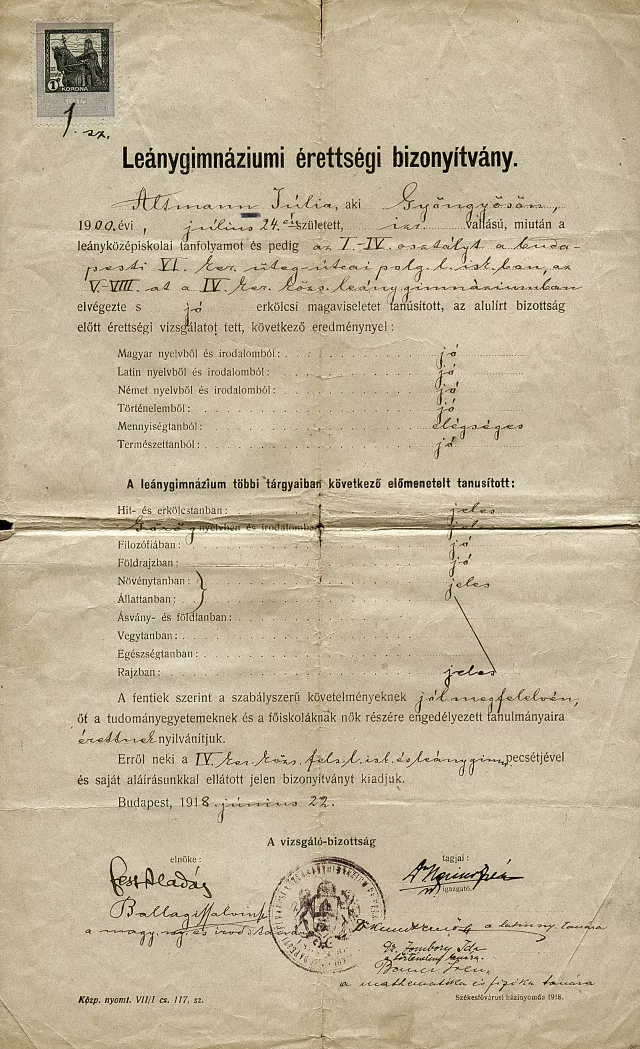 1 KORONA
1. sz.
Leánygimnáziumi érettségi bizonyítvány.
Altmann Júlia, aki Gyöngyösön,
1900. évi, július 24.-én született, izr. vallású, miután a
leányközépiskolai tanfolyamot és pedig az I.-IV. osztályt a buda-
pesti VI. ker. üteg-utcai polg. l. isk.ban, az
V-VIII.-at a IV. ker. közs. leánygimnáziumban
elvégezte s jó erkölcsi magaviseletet tanúsított, az alulírt bizottság
előtt érettségi vizsgálatot tett, következő eredménynyel:
Magyar nyelvből és irodalomból: jó
Latin nyelvből és irodalomból: jó
Német nyelvből és irodalomból: jó
Történelemből: jó
Mennyiségtanból: elégséges
Természettanból: jó
A leánygimnázium többi tárgyaiban következő előmenetelt tanusított:
Hit- és erkölcstanban: jeles
Görög nyelvben és irodalomban jeles
Filozófiában: jó
Földrajzban: jó
Növénytanban: jeles
Állattanban:
Ásvány- és földtanban:
Vegytanban:
Egészségtanban:
Rajzban: jeles
A fentiek szerint a szabályszerű követelményeknek jól megfelelvén,
őt a tudományegyetemeknek és a főiskoláknak nők részére engedélyezett tanulmányaira
érettnek nyilvánítjuk.
Erről neki a IV. ker. közs. fels. l. isk. és leánygimn. pecsétjével
és saját aláírásunkkal ellátott jelen bizonyítványt kiadjuk.
Budapest, 1918. június 22.
A vizsgáló-bizottság
elnöke: tagjai:
Fest Aladár
igazgató.
Ballagi
a magy. ny. és irod. tanára
a latin ny. tanára
Dr. Zombory Ida
a történelem tanára.
a mathematika és fizika tanára
Közp. nyomt. VII/I cs. 117. sz. Székesfővárosi házinyomda 1918.